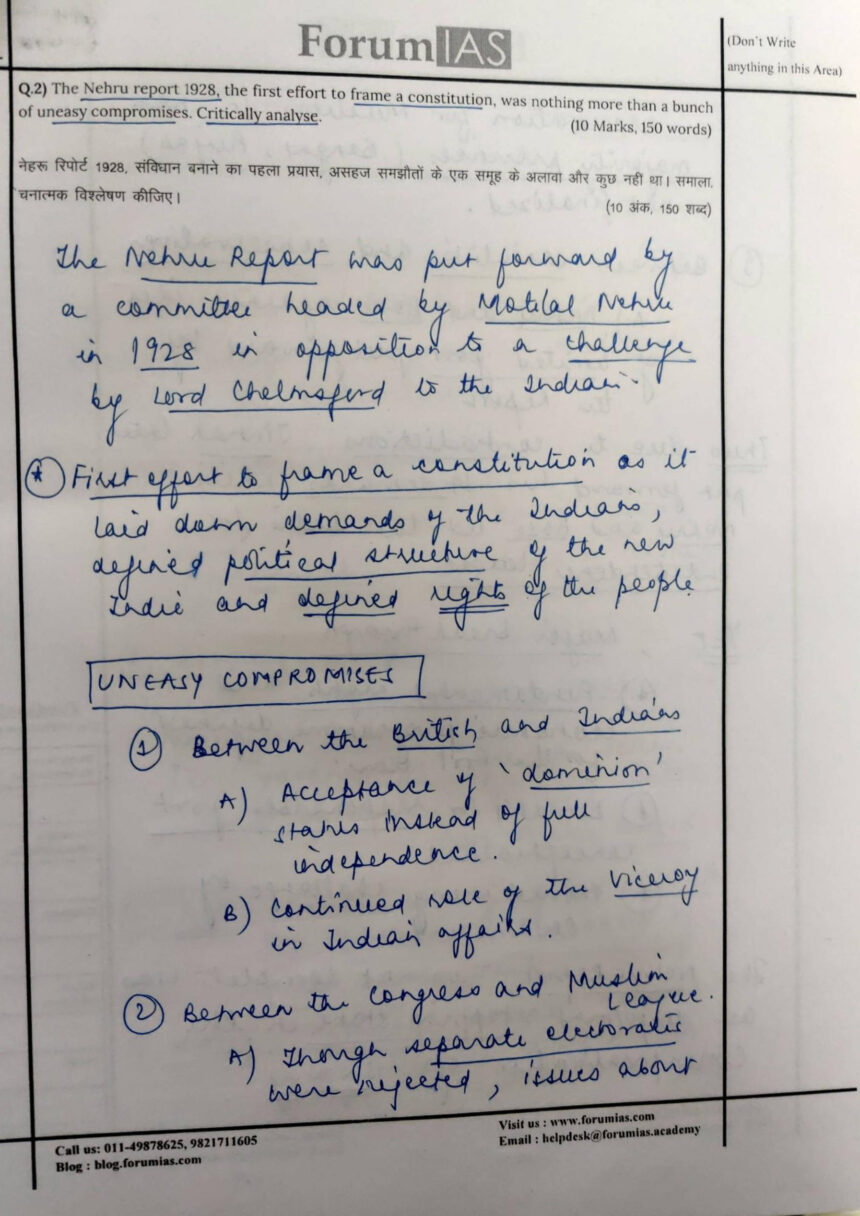 Forum IAS
(Don't Write
anything in this Area)
Q.2) The Nehru report 1928, the first effort to frame a constitution, was nothing more than a bunch
of uneasy compromises. Critically analyse.
(10 Marks, 150 words)
नेहरू रिपोर्ट 1928, संविधान बनाने का पहला प्रयास, असहज समझौतों के एक समूह के अलावा और कुछ नहीं था। समाला.
चनात्मक विश्लेषण कीजिए।
(10 अंक, 150 शब्द)
The Nehru Report was put forward by
a committee headed by Motilal Nehru
in 1928 in opposition to a challenge
by Lord Chelmsford to the Indians.
* First effort to frame a constitution as it
laid down demands of the Indians,
defined political structure of the new
India and defined rights of the people
UNEASY COMPROMISES
1 Between the British and Indians
A) Acceptance of 'dominion'
status instead of full
independence.
B) Continued role of the Viceroy
in Indian affairs.
2 Between the Congress and Muslim
League.
A) Though separate electorates
were rejected, issues about
Call us: 011-49878625, 9821711605
Blog : blog.forumias.com
Visit us : www.forumias.com
Email : helpdesk@forumias.academy